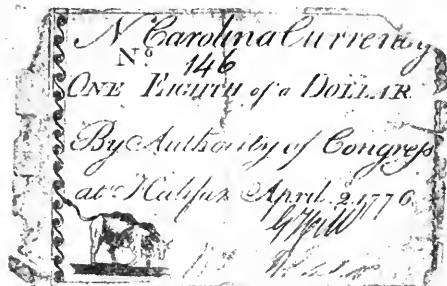 N Carolina Currency
No 146
ONE EIGHTH of a DOLLAR
By Authority of Congress
at Halifax April 2 1776